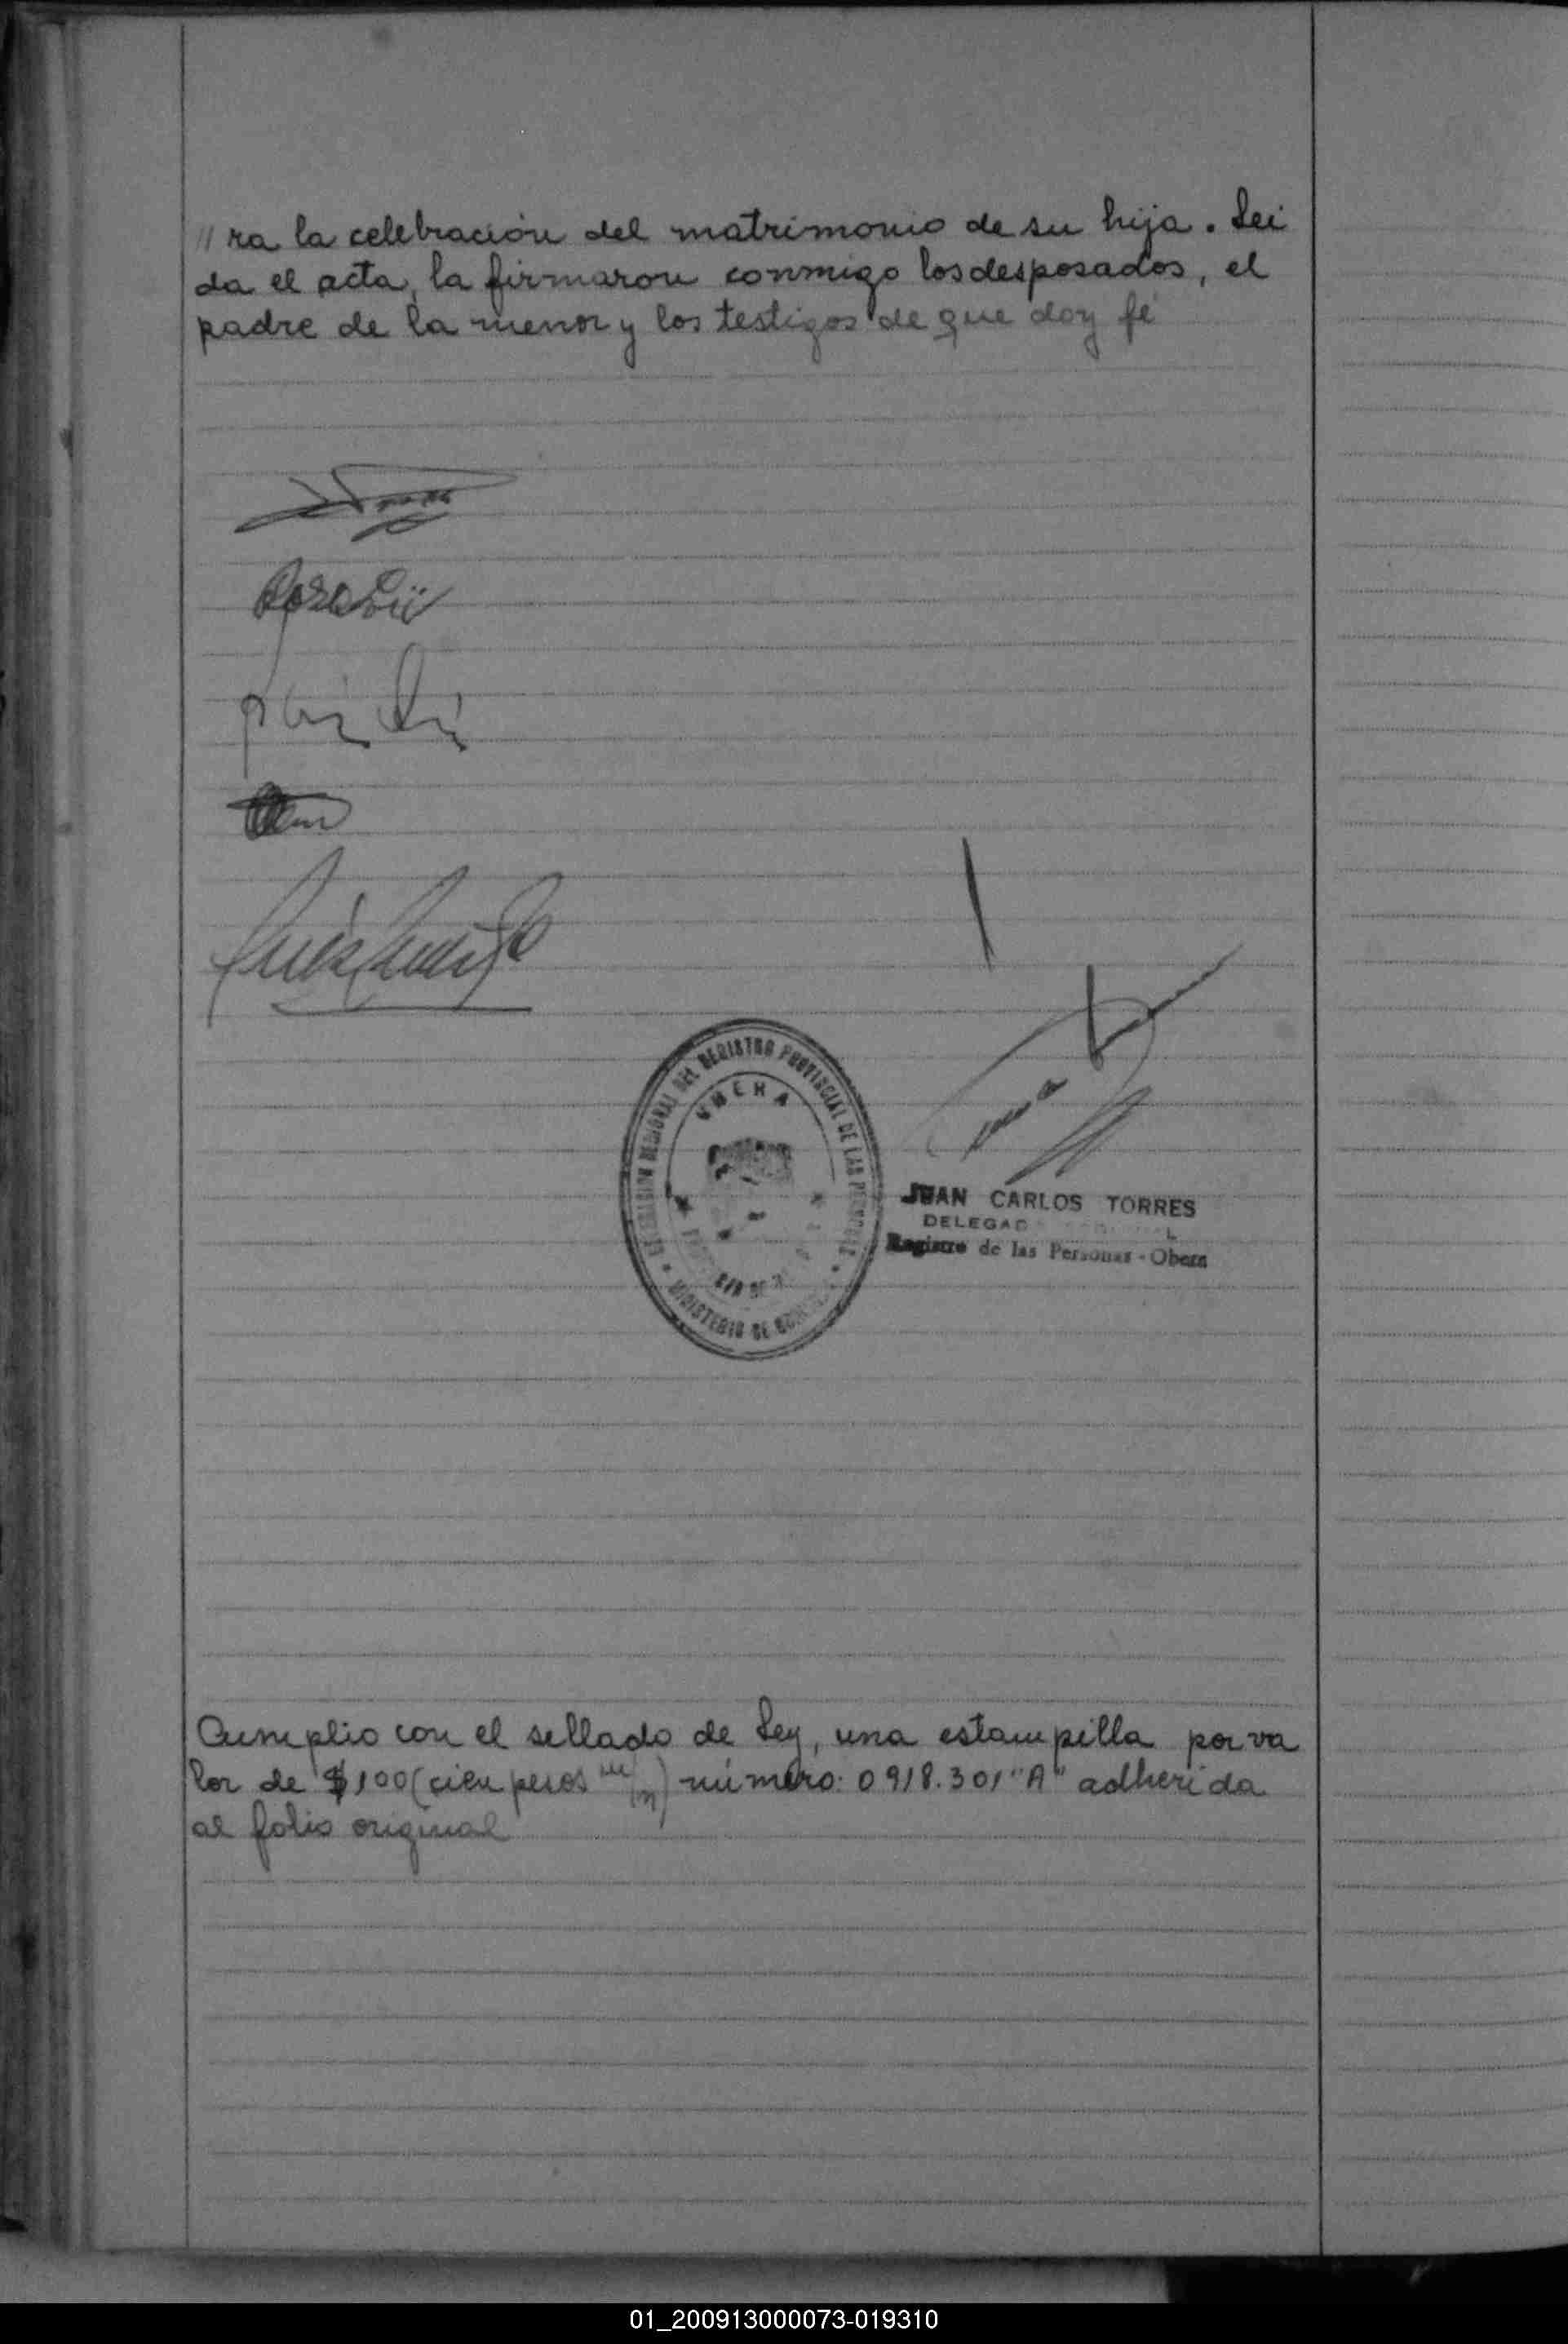 //ra la celebración del matrimonio de su hija. Lei
da el acta, la firmaron conmigo los desposados, el
padre de la menor y los testigos de que doy fé
DELEGACION REGIONAL DEL REGISTRO PROVINCIAL DE LAS PERSONAS
OBERA
MINISTERIO DE
JUAN CARLOS TORRES
DELEGAD
Registro de las Personas - Obera
Cumplio con el sellado de Ley, una estampilla por va
lor de $100 (cien pesos m/n) número: 0918.301 "A" adherida
al folio original
01_200913000073-019310